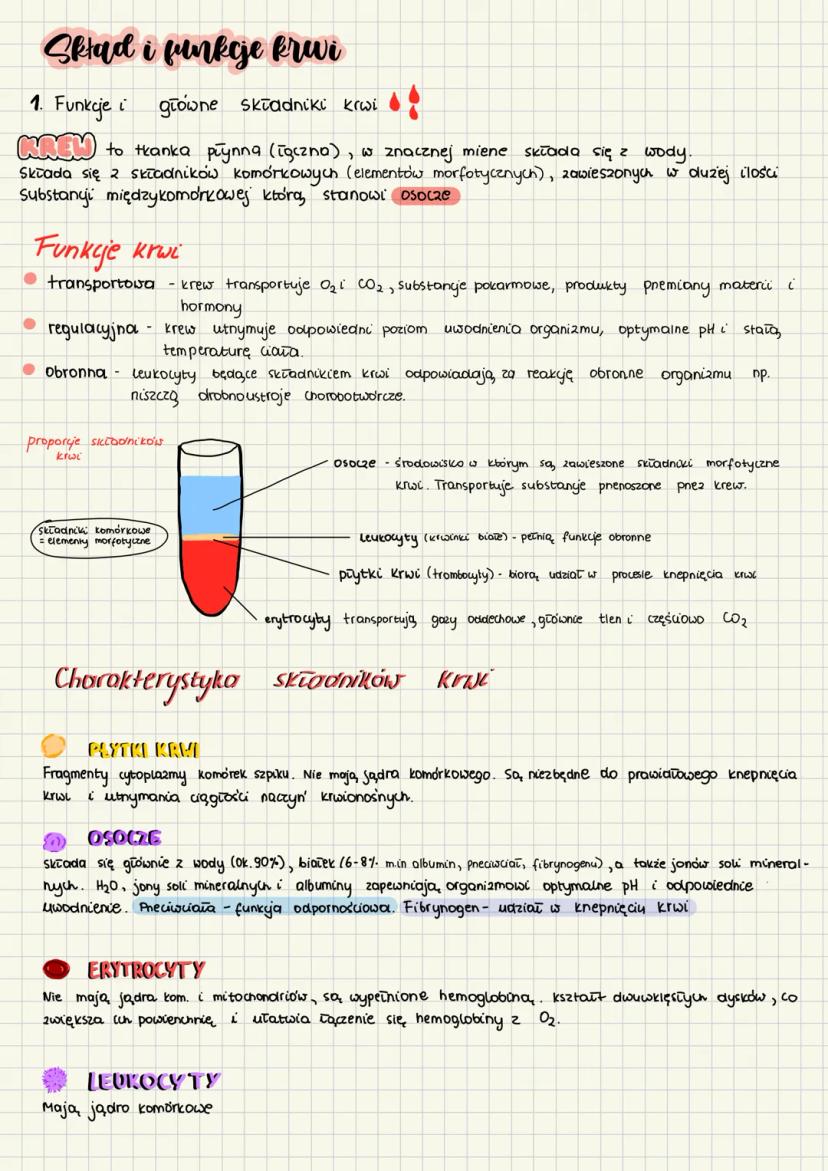 Skład i funkcje krwi
1. Funkcje i główne składniki krwi
KREW to tkanka płynna (łączna), w znacznej mierze składa się z wody.
Składa się z składników komórkowych (elementów morfotycznych), zawieszonych w dużej ilości
substancji międzykomórkowej którą stanowi osocze
Funkcje krwi
transportowa - krew transportuje O₂ i CO₂, substancje pokarmowe, produkty przemiany materii i
hormony
regulacyjna - krew utrzymuje odpowiedni poziom uwodnienia organizmu, optymalne pH i stałą
temperaturę ciała.
Obronna - leukocyty będące składnikiem krwi odpowiadają za reakcję obronne organizmu np.
niszczą drobnoustroje chorobotwórcze.
proporcje składników
krwi
osocze - środowisko w którym są zawieszone składniki morfotyczne
krwi. Transportuje substancje przenoszone przez krew.
składniki komórkowe
= elementy morfotyczne
leukocyty (krwinki białe) - pełnią funkcje obronne
płytki krwi (trombocyty) - biorą udział w procesie krzepnięcia krwi
erytrocyty transportują gazy oddechowe, głównie tlen i częściowo CO₂
Charakterystyka składników krwi
PŁYTKI KRWI
Fragmenty cytoplazmy komórek szpiku. Nie mają jądra komórkowego. Są niezbędne do prawiałowego krzepnięcia
krwi i utrzymania ciągłości naczyń krwionośnych.
OSOCZE
składa się głównie z wody (ok. 90%), białek (6-8% m.in albumin, przeciwciał, fibrynogenu), a także jonów soli mineral-
nych. H₂O, jony soli mineralnych i albuminy zapewniają organizmowi optymalne pH i odpowiednie
uwodnienie. Przeciwciała - funkcja odpornościowa. Fibrynogen - udział w krzepnięciu krwi
ERYTROCYTY
Nie mają jądra kom. i mitochondriów, są wypełnione hemoglobiną. kształt dwuwklęsłych dysków, co
zwiększa ich powierzchnię i ułatwia łączenie się hemoglobiny z O₂.
LEUKOCYTY
Mają jądro komórkowe